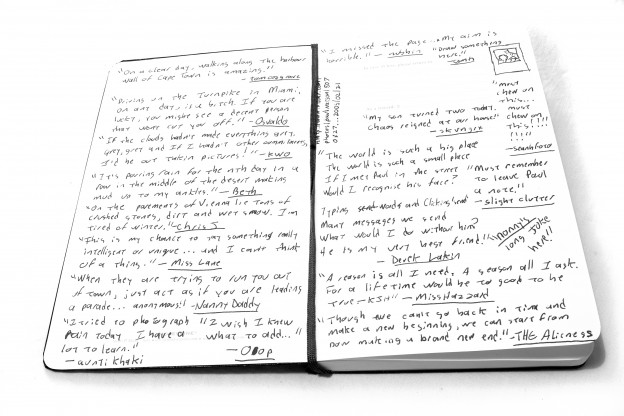 "On a clear day, walking along the harbour
wall of Cape Town is amazing."
"Driving on the Turnpike in Miami,
on any day, is a bitch. If you are
lucky, you might see a decent person
that won't cut you off." - Osvaldo
"If the clouds hadn't made everything grey,
grey, grey and if I hadn't other
I'd be out takin pictures!" - Kwo
"It's pouring rain for the nth day in a
row in the middle of the desert making
mud up to my ankles." - Beth
"On the pavements of Vienna lie tons of
crushed stones, dirt and wet snow. I'm
tired of winter." - Chris S
"This is my chance to say something really
intelligent or unique... and I can't think
of a thing." - Miss Lane
"When they are trying to run you out
of town, just act as if you are leading
a parade... anonymous! - Nanny Daddy
"I tried to photograph
rain today I have a
lot to learn."
- aunti khaki
"I wish I knew
what to add..."
"I missed the page... My aim is
horrible." -
"Draw something
here."
"must
chew on
this...
must
chew on
this!!!!
"My son turned two today.
Chaos reigned at our house"
"The world is such a big place
The world is such a small place
If I met Paul in the street
Would I recognise his face?
Typing words and Clicking
Many messages we send
What would I do without him?
He is my very best friend!"
- Derek Lakin
"Must remember
to leave Paul
a note."
- slight clutter
nanny's
long joke
here!!
"A reason is all I need, A season all I ask.
For a lifetime would be to good to be
true - KSH" - MissHazzard
"Though we can't go back in Time and
make a new beginning, we can start from
now making a brand new end." - THG Alicness